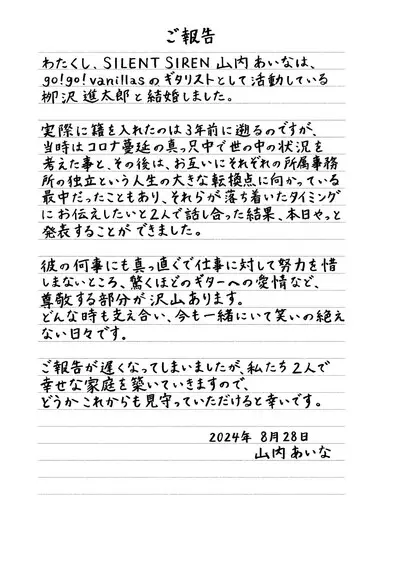 ご報告
わたくし、SILENT SIREN 山内あいなは、
go!go!vanillasのギタリストとして活動している
柳沢 進太郎と結婚しました。
実際に籍を入れたのは3年前に遡るのですが、
当時はコロナ蔓延の真っ只中で世の中の状況を
考えた事と、その後は、お互いにそれぞれの所属事務
所の独立という人生の大きな転換点に向かっている
最中だったこともあり、それらが落ち着いたタイミング
にお伝えしたいと2人で話し合った結果、本日やっと
発表することができました。
彼の何事にも真っ直ぐで仕事に対して努力を惜
しまないところ、驚くほどのギターへの愛情など、
尊敬する部分が沢山あります。
どんな時も支え合い、今も一緒にいて笑いの絶え
ない日々です。
ご報告が遅くなってしまいましたが、私たち2人で
幸せな家庭を築いていきますので、
どうかこれからも見守っていただけると幸いです。
2024年 8月28日
山内あいな